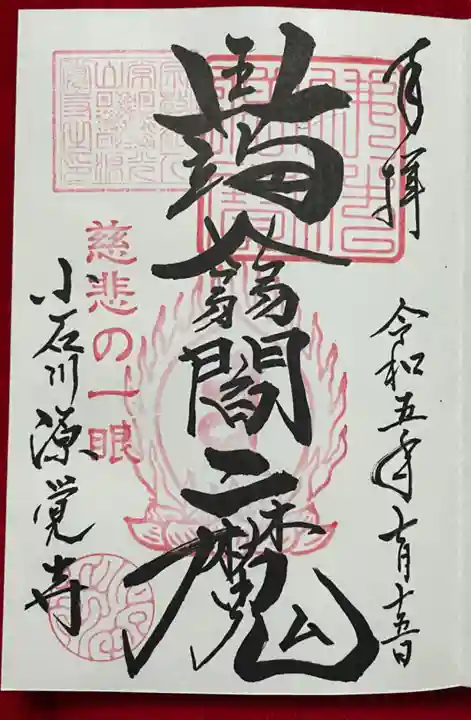 奉拝
令和五年七月十五日
蒟蒻閻魔
慈悲の一眼
小石川源覚寺